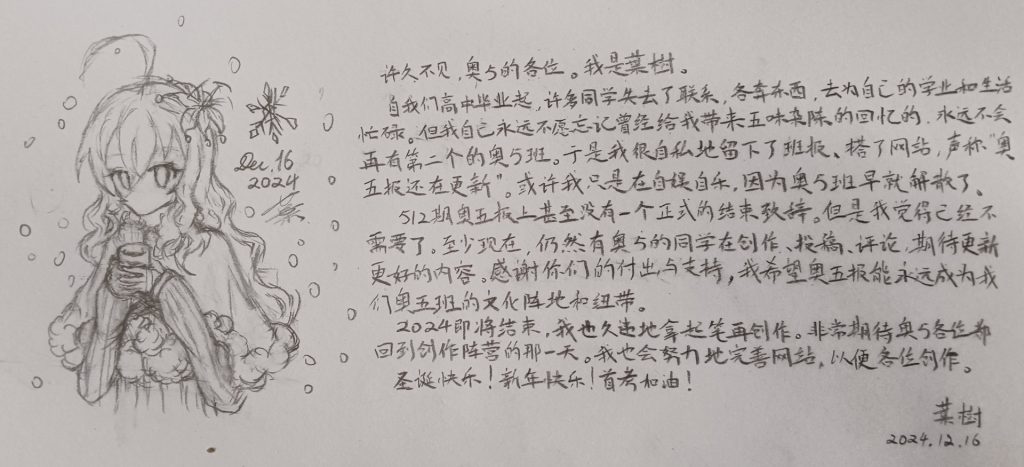 Dec.16
2024
葉
许久不见，奥5的各位。我是葉樹。
自我们高中毕业起，许多同学失去了联系，各奔东西，去为自己的学业和生活
忙碌。但我自己永远不愿忘记曾经给我带来五味杂陈的回忆的，永远不会
再有第二个的奥5班。于是我很自私地留下了班报、搭了网站，声称“奥
五报还在更新”。或许我只是在自娱自乐，因为奥5班早就解散了。
512期奥五报上甚至没有一个正式的结束致辞。但是我觉得已经不
需要了。至少现在，仍然有奥5的同学在创作、投稿、评论，期待更新
更好的内容。感谢你们的付出与支持，我希望奥五报能永远成为我
们奥五班的文化阵地和纽带。
2024即将结束，我也久违地拿起笔再创作。非常期待奥5各位都
回到创作阵营的那一天。我也会努力地完善网站，以便各位创作。
圣诞快乐！新年快乐！首考加油！
葉樹
2024.12.16